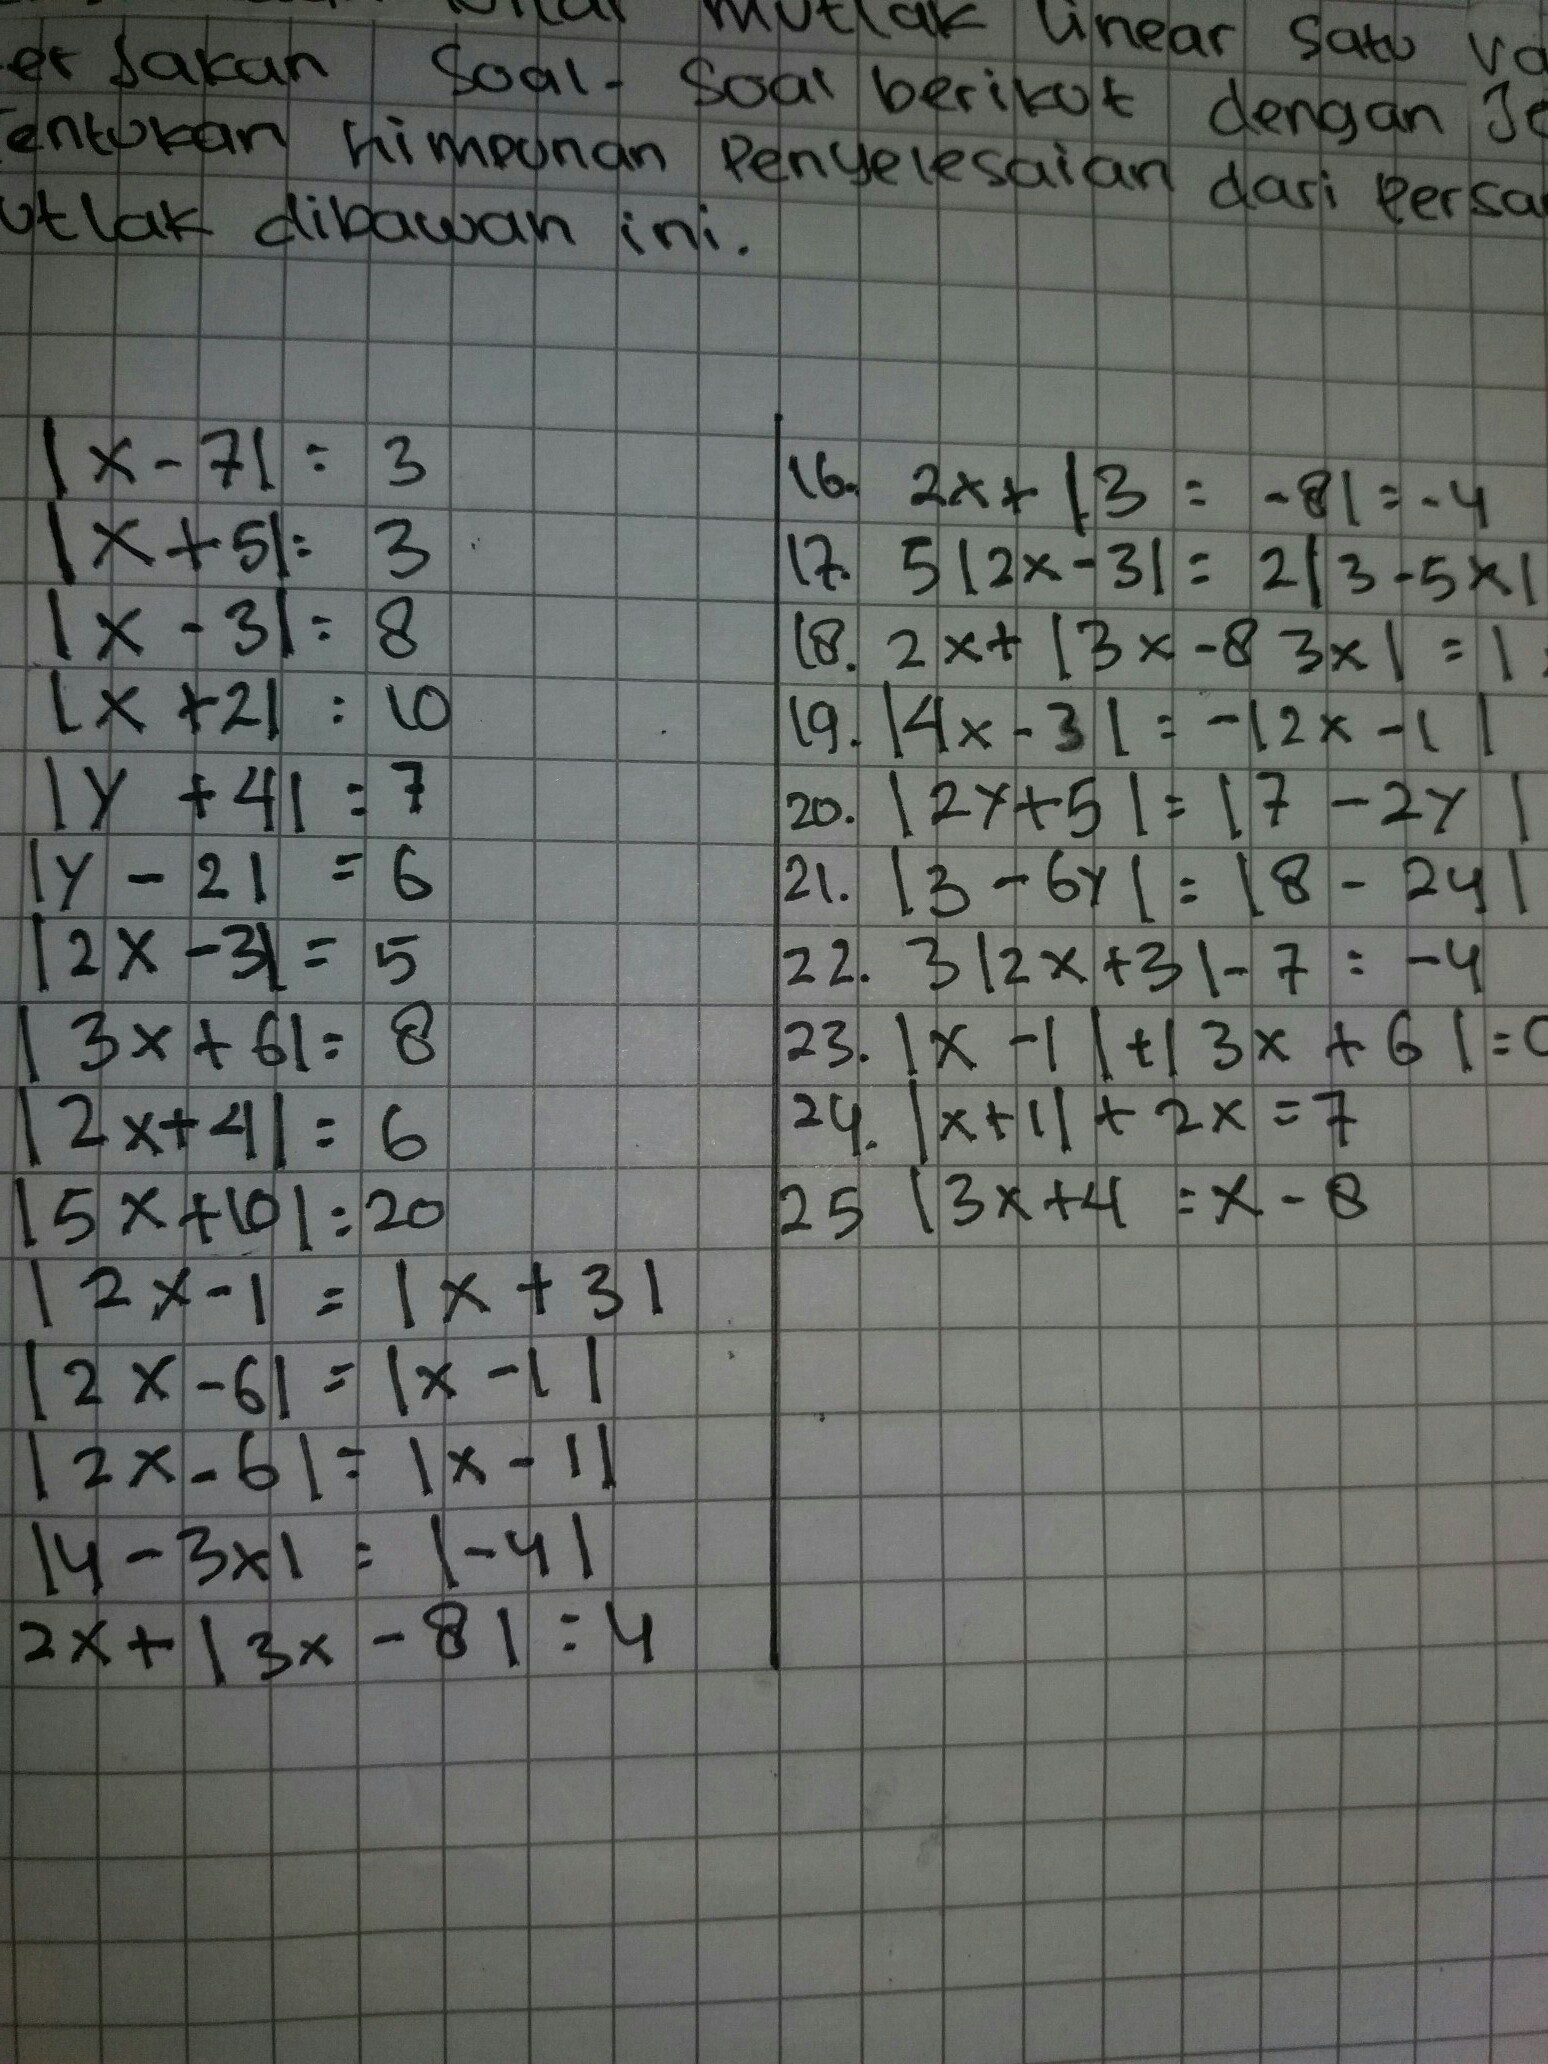 mutlak linear satu va
er jakan soal- soal berikut dengan Je
entukan himpunan Penyelesaian dari Persa
utlak dibawah ini.
|x - 7| = 3
|x + 5| = 3
|x - 3| = 8
|x + 2| = 10
|y + 4| = 7
|y - 2| = 6
|2x - 3| = 5
|3x + 6| = 8
|2x + 4| = 6
|5x + 10| = 20
|2x - 1 = |x + 3|
|2x - 6| = |x - 1|
|2x - 6| = |x - 1|
|4 - 3x| = |-4|
2x + |3x - 8| = 4
16. 2x + |3 = -8| = -4
17. 5|2x - 3| = 2|3 - 5x|
18. 2x + |3x - 8 3x| = |
19. |4x - 3| = -|2x - 1|
20. |2y + 5| = |7 - 2y|
21. |3 - 6y| = |8 - 2y|
22. 3|2x + 3| - 7 = -4
23. |x - 1| + |3x + 6| = 0
24. |x + 1| + 2x = 7
25 |3x + 4 = x - 8